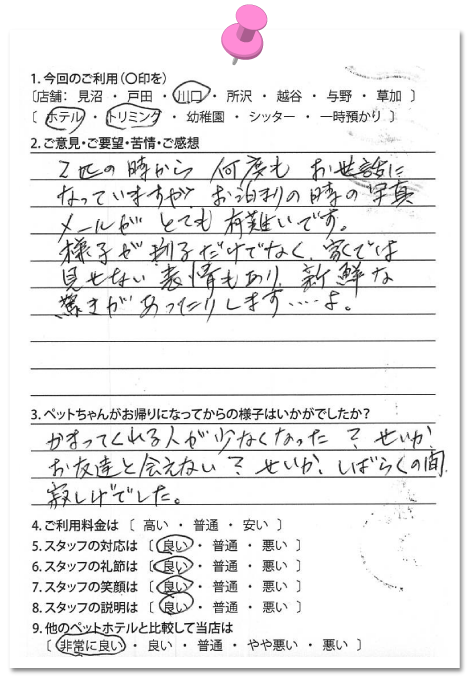 1. 今回のご利用(〇印を)
〔店舗： 見沼 ・ 戸田 ・ 川口 ・ 所沢 ・ 越谷 ・ 与野 ・ 草加 〕
〔 ホテル ・ トリミング ・ 幼稚園 ・ シッター ・ 一時預かり 〕
2. ご意見・ご要望・苦情・ご感想
2匹の時から 何度も お世話に
なっていますが、お泊りの時の写真
メールが とても 有難いです。
様子が判るだけでなく、家では
見せない 表情もあり、新鮮な
驚きがあったりします……よ。
3. ペットちゃんがお帰りになってからの様子はいかがでしたか？
かまってくれる人が少なくなった ？ せいか、
お友達と会えない ？ せいか、しばらくの間、
寂しげでした。
4. ご利用料金は 〔 高い ・ 普通 ・ 安い 〕
5. スタッフの対応は 〔 良い ・ 普通 ・ 悪い 〕
6. スタッフの礼節は 〔 良い ・ 普通 ・ 悪い 〕
7. スタッフの笑顔は 〔 良い ・ 普通 ・ 悪い 〕
8. スタッフの説明は 〔 良い ・ 普通 ・ 悪い 〕
9. 他のペットホテルと比較して当店は
〔 非常に良い ・ 良い ・ 普通 ・ やや悪い ・ 悪い 〕